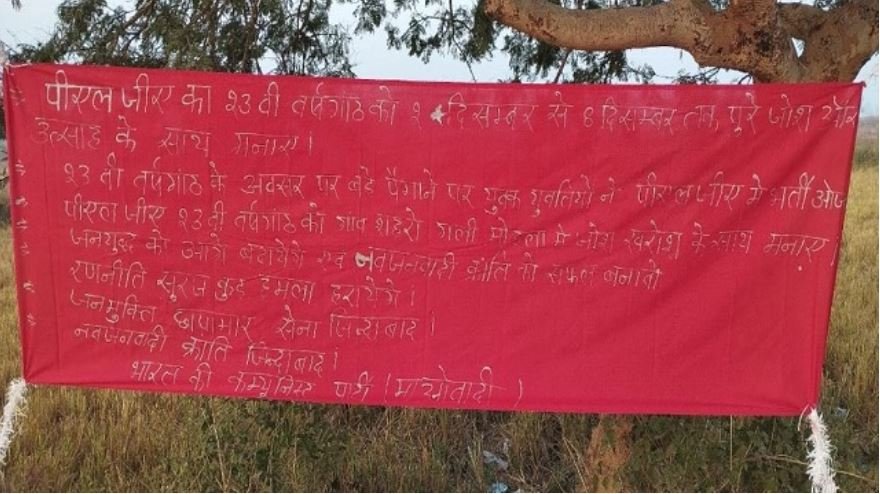 पीएल जीए का २३ वी वर्षगाठ को २ दिसम्बर से ८ दिसम्बर तक, पुरे जोश और
उत्साह के साथ मनाए।
२३ वी वर्षगांठ के अवसर पर बडे पैमाने पर युवक युवतियो ने पीएल जीए मे भर्ती ओए
पीएल जीए २३ वी वर्षगांठ को गाव शहरो गली मोहल्ला मे जोश खरोश के साथ मनाए।
जनयुद्ध को आगे बढायेगे एवं नवजनवादी क्रांति को सफल बनावो
रणनीति सुरजकुंड हमला हरायेगे।
जनमुक्ति छापामार सेना जिन्दाबाद।
नवजनवादी क्रांति जिन्दाबाद।
भारत की कम्युनिस्ट पार्टी (माओवादी)